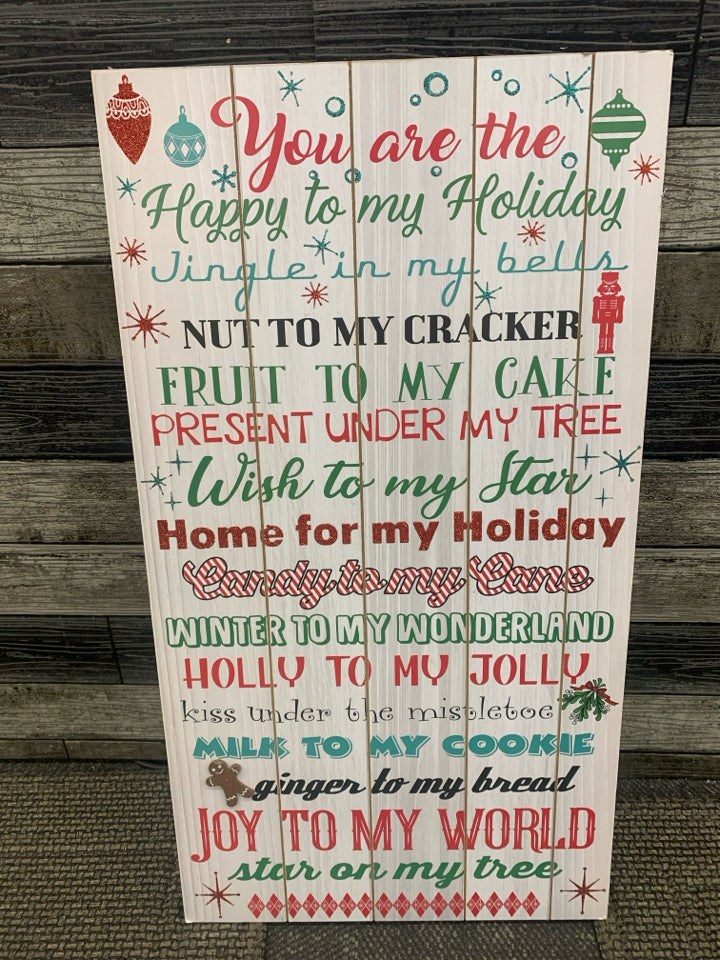 You are the
Happy to my Holiday
Jingle in my bells
NUT TO MY CRACKER
FRUIT TO MY CAKE
PRESENT UNDER MY TREE
Wish to my Star
Home for my Holiday
Candy to my Cane
WINTER TO MY WONDERLAND
HOLLY TO MY JOLLY
kiss under the mistletoe
MILK TO MY COOKIE
ginger to my bread
JOY TO MY WORLD
star on my tree